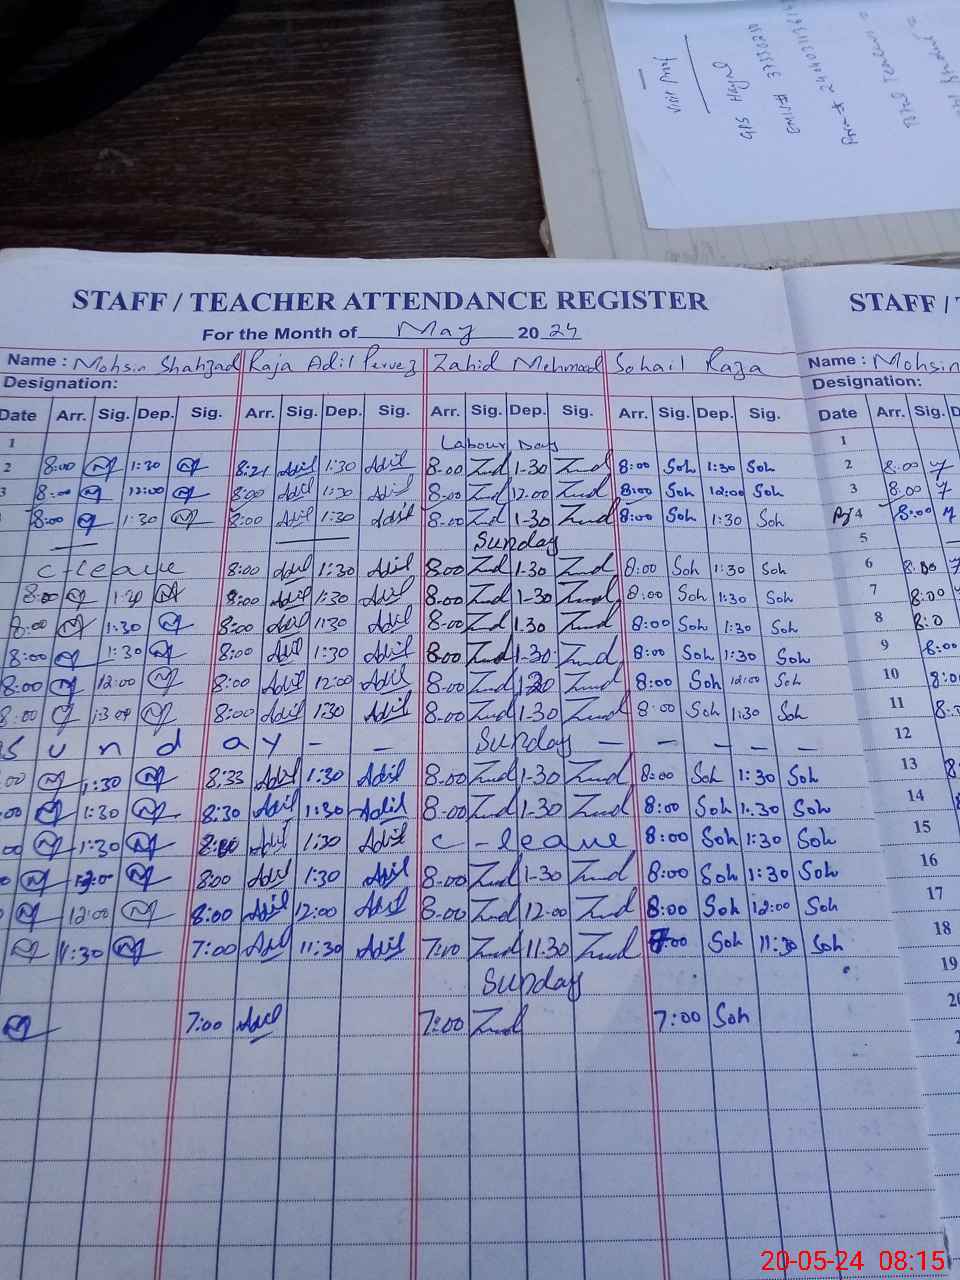 GPS Hajra
EMIS# 37330218
STAFF / TEACHER ATTENDANCE REGISTER STAFF /
For the Month of May 2024
Name : Mohsin Shahzad Raja Adil Pervez Zahid Mehmood Sohail Raza Name : Mohsin
Designation: Designation:
Date Arr. Sig. Dep. Sig. Arr. Sig. Dep. Sig. Arr. Sig. Dep. Sig. Arr. Sig. Dep. Sig. Date Arr. Sig. D
1 Labour Day 1
2 8:00 1:30 8:21 Adil 1:30 Adil 8-00 Zmd 1-30 Zmd 8:00 Soh 1:30 Soh 2 8:00
3 8:00 12:00 8:00 Adil 1:30 Adil 8-00 Zmd 12-00 Zmd 8:00 Soh 12:00 Soh 3 8:00
8:00 1:30 8:00 Adil 1:30 Adil 8-00 Zmd 1-30 Zmd 8:00 Soh 1:30 Soh 4 8:00
Sunday 5
C-leave 8:00 Adil 1:30 Adil 8-00 Zmd 1-30 Zmd 8:00 Soh 1:30 Soh 6 8:00
8:00 1:30 8:00 Adil 1:30 Adil 8-00 Zmd 1-30 Zmd 8:00 Soh 1:30 Soh 7 8:00
8:00 1:30 8:00 Adil 1:30 Adil 8-00 Zmd 1-30 Zmd 8:00 Soh 1:30 Soh 8 8:0
8:00 1:30 8:00 Adil 1:30 Adil 8-00 Zmd 1-30 Zmd 8:00 Soh 1:30 Soh 9 8:00
8:00 12:00 8:00 Adil 12:00 Adil 8-00 Zmd Zmd 8:00 Soh 12:00 Soh 10 8:0
8:00 1:30 8:00 Adil 1:30 Adil 8-00 Zmd 1-30 Zmd 8:00 Soh 1:30 Soh 11 8:
Sunday - - Sunday - - - - - 12
:00 1:30 8:33 Adil 1:30 Adil 8-00 Zmd 1-30 Zmd 8:00 Soh 1:30 Soh 13 8
:00 1:30 8:30 Adil 1:30 Adil 8-00 Zmd 1-30 Zmd 8:00 Soh 1:30 Soh 14
00 1:30 8:00 Adil 1:30 Adil C-leave 8:00 Soh 1:30 Soh 15
0 8:00 Adil 1:30 Adil 8-00 Zmd 1-30 Zmd 8:00 Soh 1:30 Soh 16
12:00 8:00 Adil 12:00 Adil 8-00 Zmd 12-00 Zmd 8:00 Soh 12:00 Soh 17
11:30 7:00 Adil 11:30 Adil 7:00 Zmd 11.30 Zmd 7:00 Soh 11:30 Soh 18
Sunday 19
7:00 Adil 7:00 Zmd 7:00 Soh 20
2
20-05-24 08:15